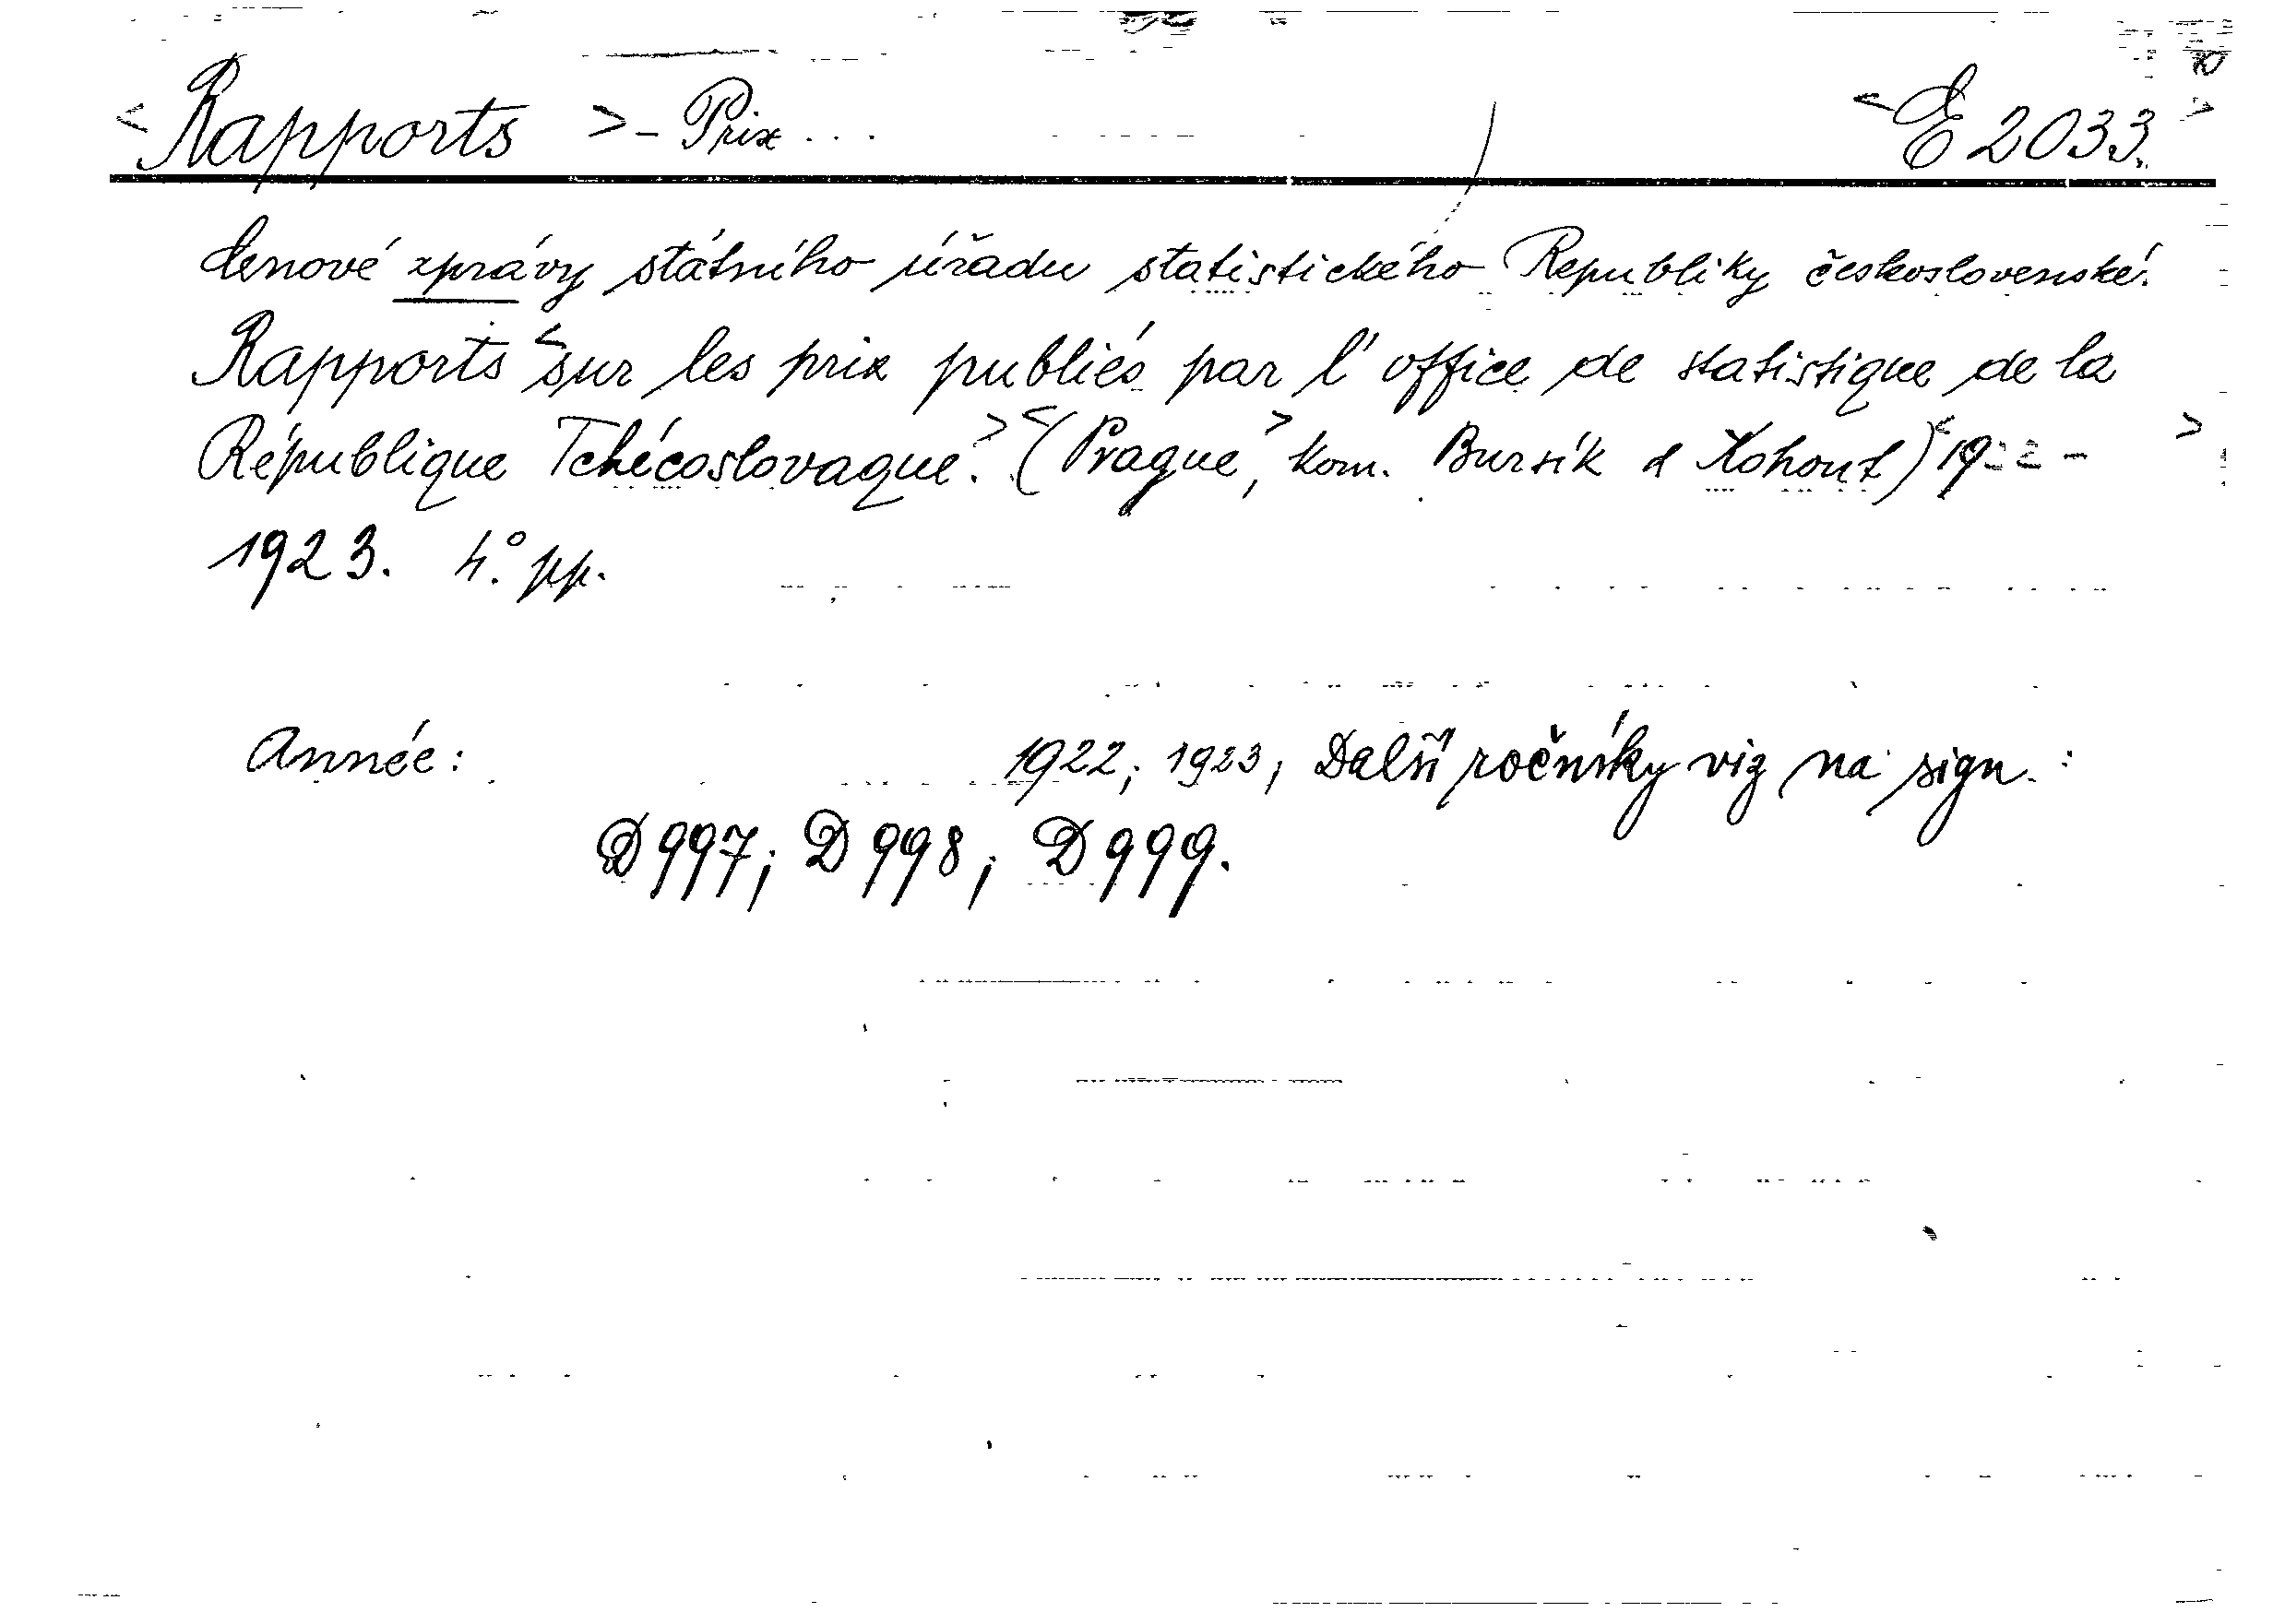 < Rapports > - Prix ... < E 2033. >
Cenové zprávy státního úřadu statistického Republiky československé.
Rapports < sur les prix publiés par l'office de statistique de la
République Tchécoslovaque. > < (Prague, > kom. Bursík & Kohout) < 1922 - >
1923. 4.° pp.
Année: 1922; 1923; Další ročníky viz na sign. :
D 997; D 998; D 999.